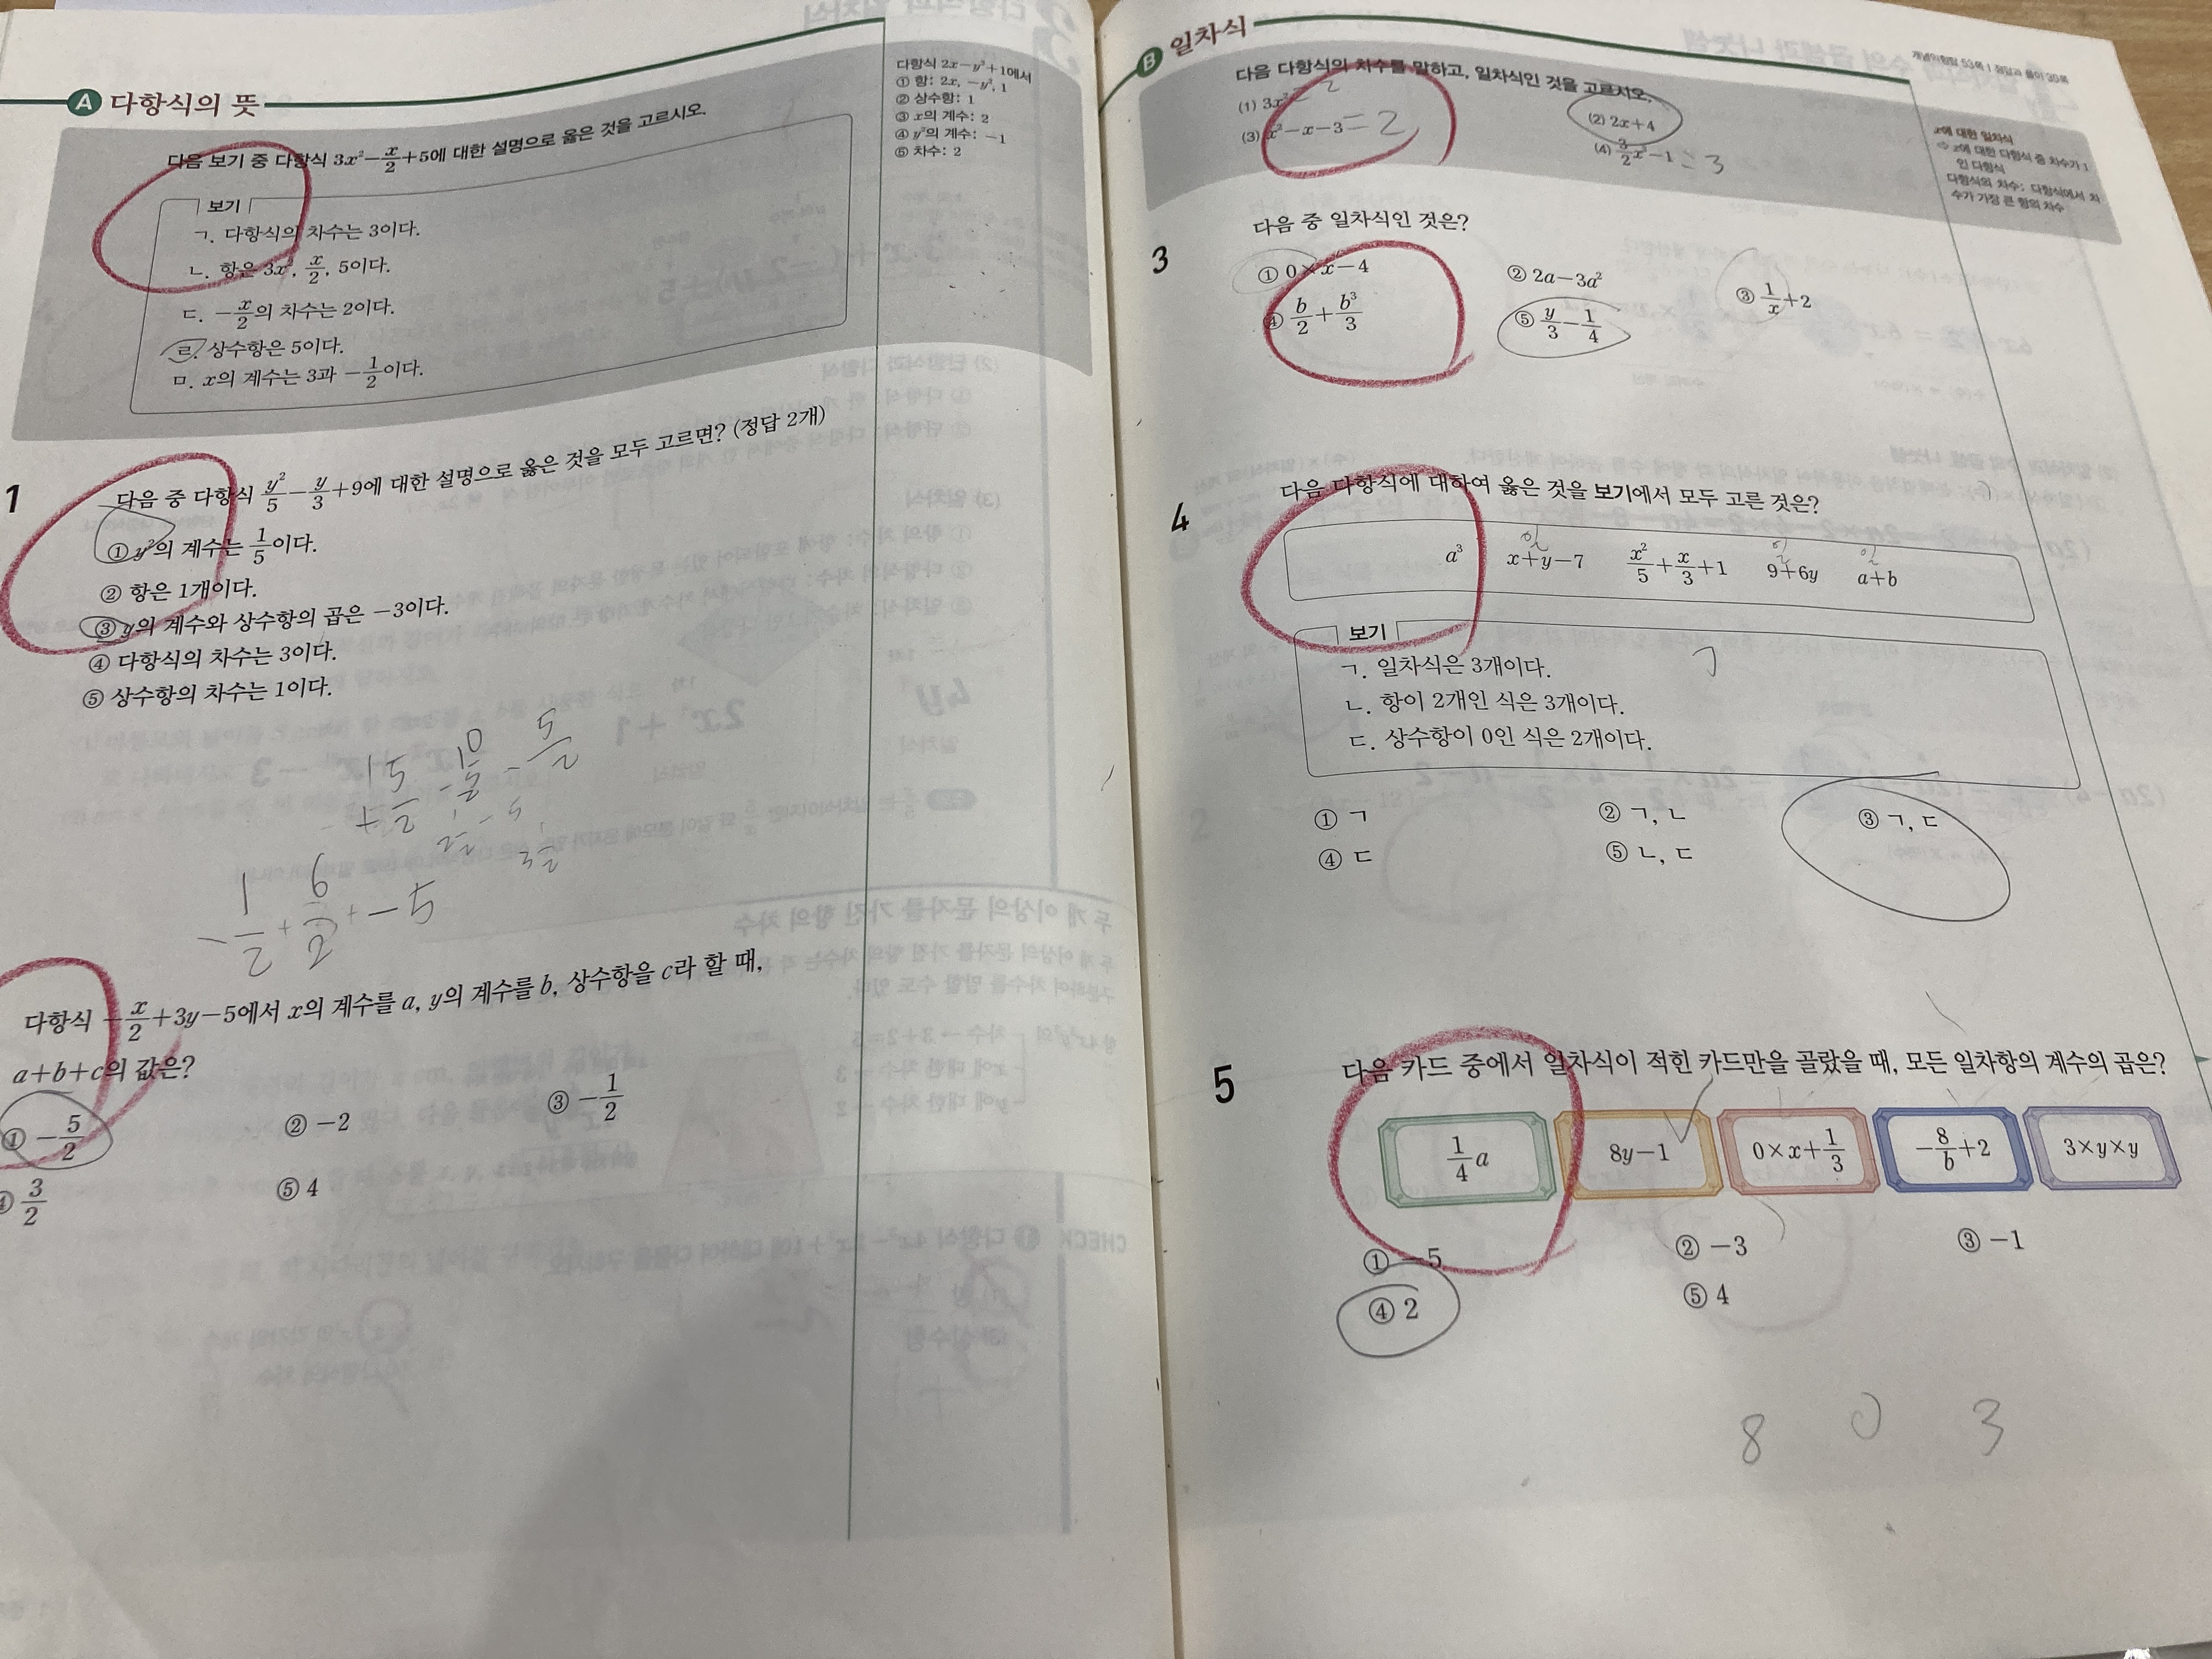 A 다항식의 뜻
다음 보기 중 다항식 3x²-x/2+5에 대한 설명으로 옳은 것을 고르시오.
보기
ㄱ. 다항식의 차수는 3이다.
ㄴ. 항은 3x², x/2, 5이다.
ㄷ. -x/2의 차수는 2이다.
ㄹ. 상수항은 5이다.
ㅁ. x의 계수는 3과 -1/2이다.
다항식 2x-y²+1에서
① 항: 2x, -y², 1
② 상수항: 1
③ x의 계수: 2
④ y²의 계수: -1
⑤ 차수: 2
1 다음 중 다항식 y²/5-y/3+9에 대한 설명으로 옳은 것을 모두 고르면? (정답 2개)
① y²의 계수는 1/5이다.
② 항은 1개이다.
③ y의 계수와 상수항의 곱은 -3이다.
④ 다항식의 차수는 3이다.
⑤ 상수항의 차수는 1이다.
-1/2+6/2+-5
다항식 -x/2+3y-5에서 x의 계수를 a, y의 계수를 b, 상수항을 c라 할 때,
a+b+c의 값은?
① -5/2 ② -2 ③ -1/2
④ 3/2 ⑤ 4
B 일차식
개념익힘탑 53쪽 | 정답과 풀이 30쪽
다음 다항식의 차수를 말하고, 일차식인 것을 고르시오.
(1) 3x² = 2 (2) 2x+4
(3) x²-x-3 = 2 (4) 3/2x³-1 = 3
x에 대한 일차식
⇨ x에 대한 다항식 중 차수가 1
인 다항식
다항식의 차수: 다항식에서 차
수가 가장 큰 항의 차수
3 다음 중 일차식인 것은?
① 0×x-4 ② 2a-3a² ③ 1/x+2
④ b/2+b³/3 ⑤ y/3-1/4
4 다음 다항식에 대하여 옳은 것을 보기에서 모두 고른 것은?
일 일 일
a³ x+y-7 x²/5+x/3+1 9+6y a+b
보기
ㄱ. 일차식은 3개이다.
ㄴ. 항이 2개인 식은 3개이다.
ㄷ. 상수항이 0인 식은 2개이다.
① ㄱ ② ㄱ, ㄴ ③ ㄱ, ㄷ
④ ㄷ ⑤ ㄴ, ㄷ
5 다음 카드 중에서 일차식이 적힌 카드만을 골랐을 때, 모든 일차항의 계수의 곱은?
1/4 a 8y-1 0×x+1/3 -8/b+2 3×y×y
① -5 ② -3 ③ -1
④ 2 ⑤ 4
8 0 3